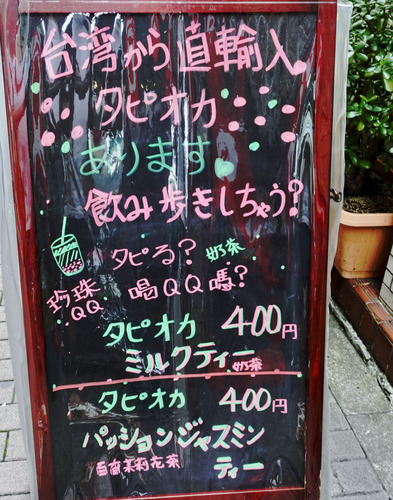 台湾から直輸入
タピオカ
あります。
飲み歩きしちゃう?
タピる? 奶茶
珍珠QQ 喝QQ嗎?
タピオカ 400円
ミルクティー 奶茶
タピオカ 400円
パッションジャスミン
百香茉莉花茶 ティー